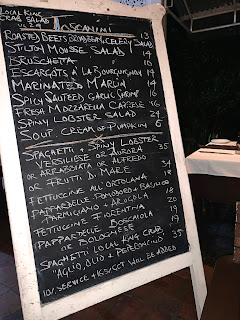 LOCAL KING
CRAB SALAD
ROASTED BEETS BOCCONCINI & CELERY SALAD 13
STILTON MOUSSE SALAD 14
BRUSCHETTA 10
ESCARGOTS A' LA BOURGUIGNON 19
MARINATED MARLIN 14
SPICY SAUTEED GARLIC SHRIMP 16
FRESH MOZZARELLA CAPRESE 16
SPINY LOBSTER SALAD 24
SOUP CREAM OF PUMPKIN
SPAGHETTI & SPINY LOBSTER
VERSILIESE OR AURORA 35
OR ARRABBIATA OR ALFREDO
OR FRUTTI DI MARE 34
FETTUCCINE ALL'ORTOLANA 18
PAPPARDELLE POMODORO & BASIL OR 18
PARMIGIANO & ARUGOLA 20
FETTUCCINE FIORENTINA 19
PAPPARDELLE BOSCAIOLA 19
OR BOLOGNESE 20
SPAGHETTI LOCAL KING CRAB 35
"AGLIO, OLIO & PEPERONCINO"
10% SERVICE & GCT WILL BE ADDED